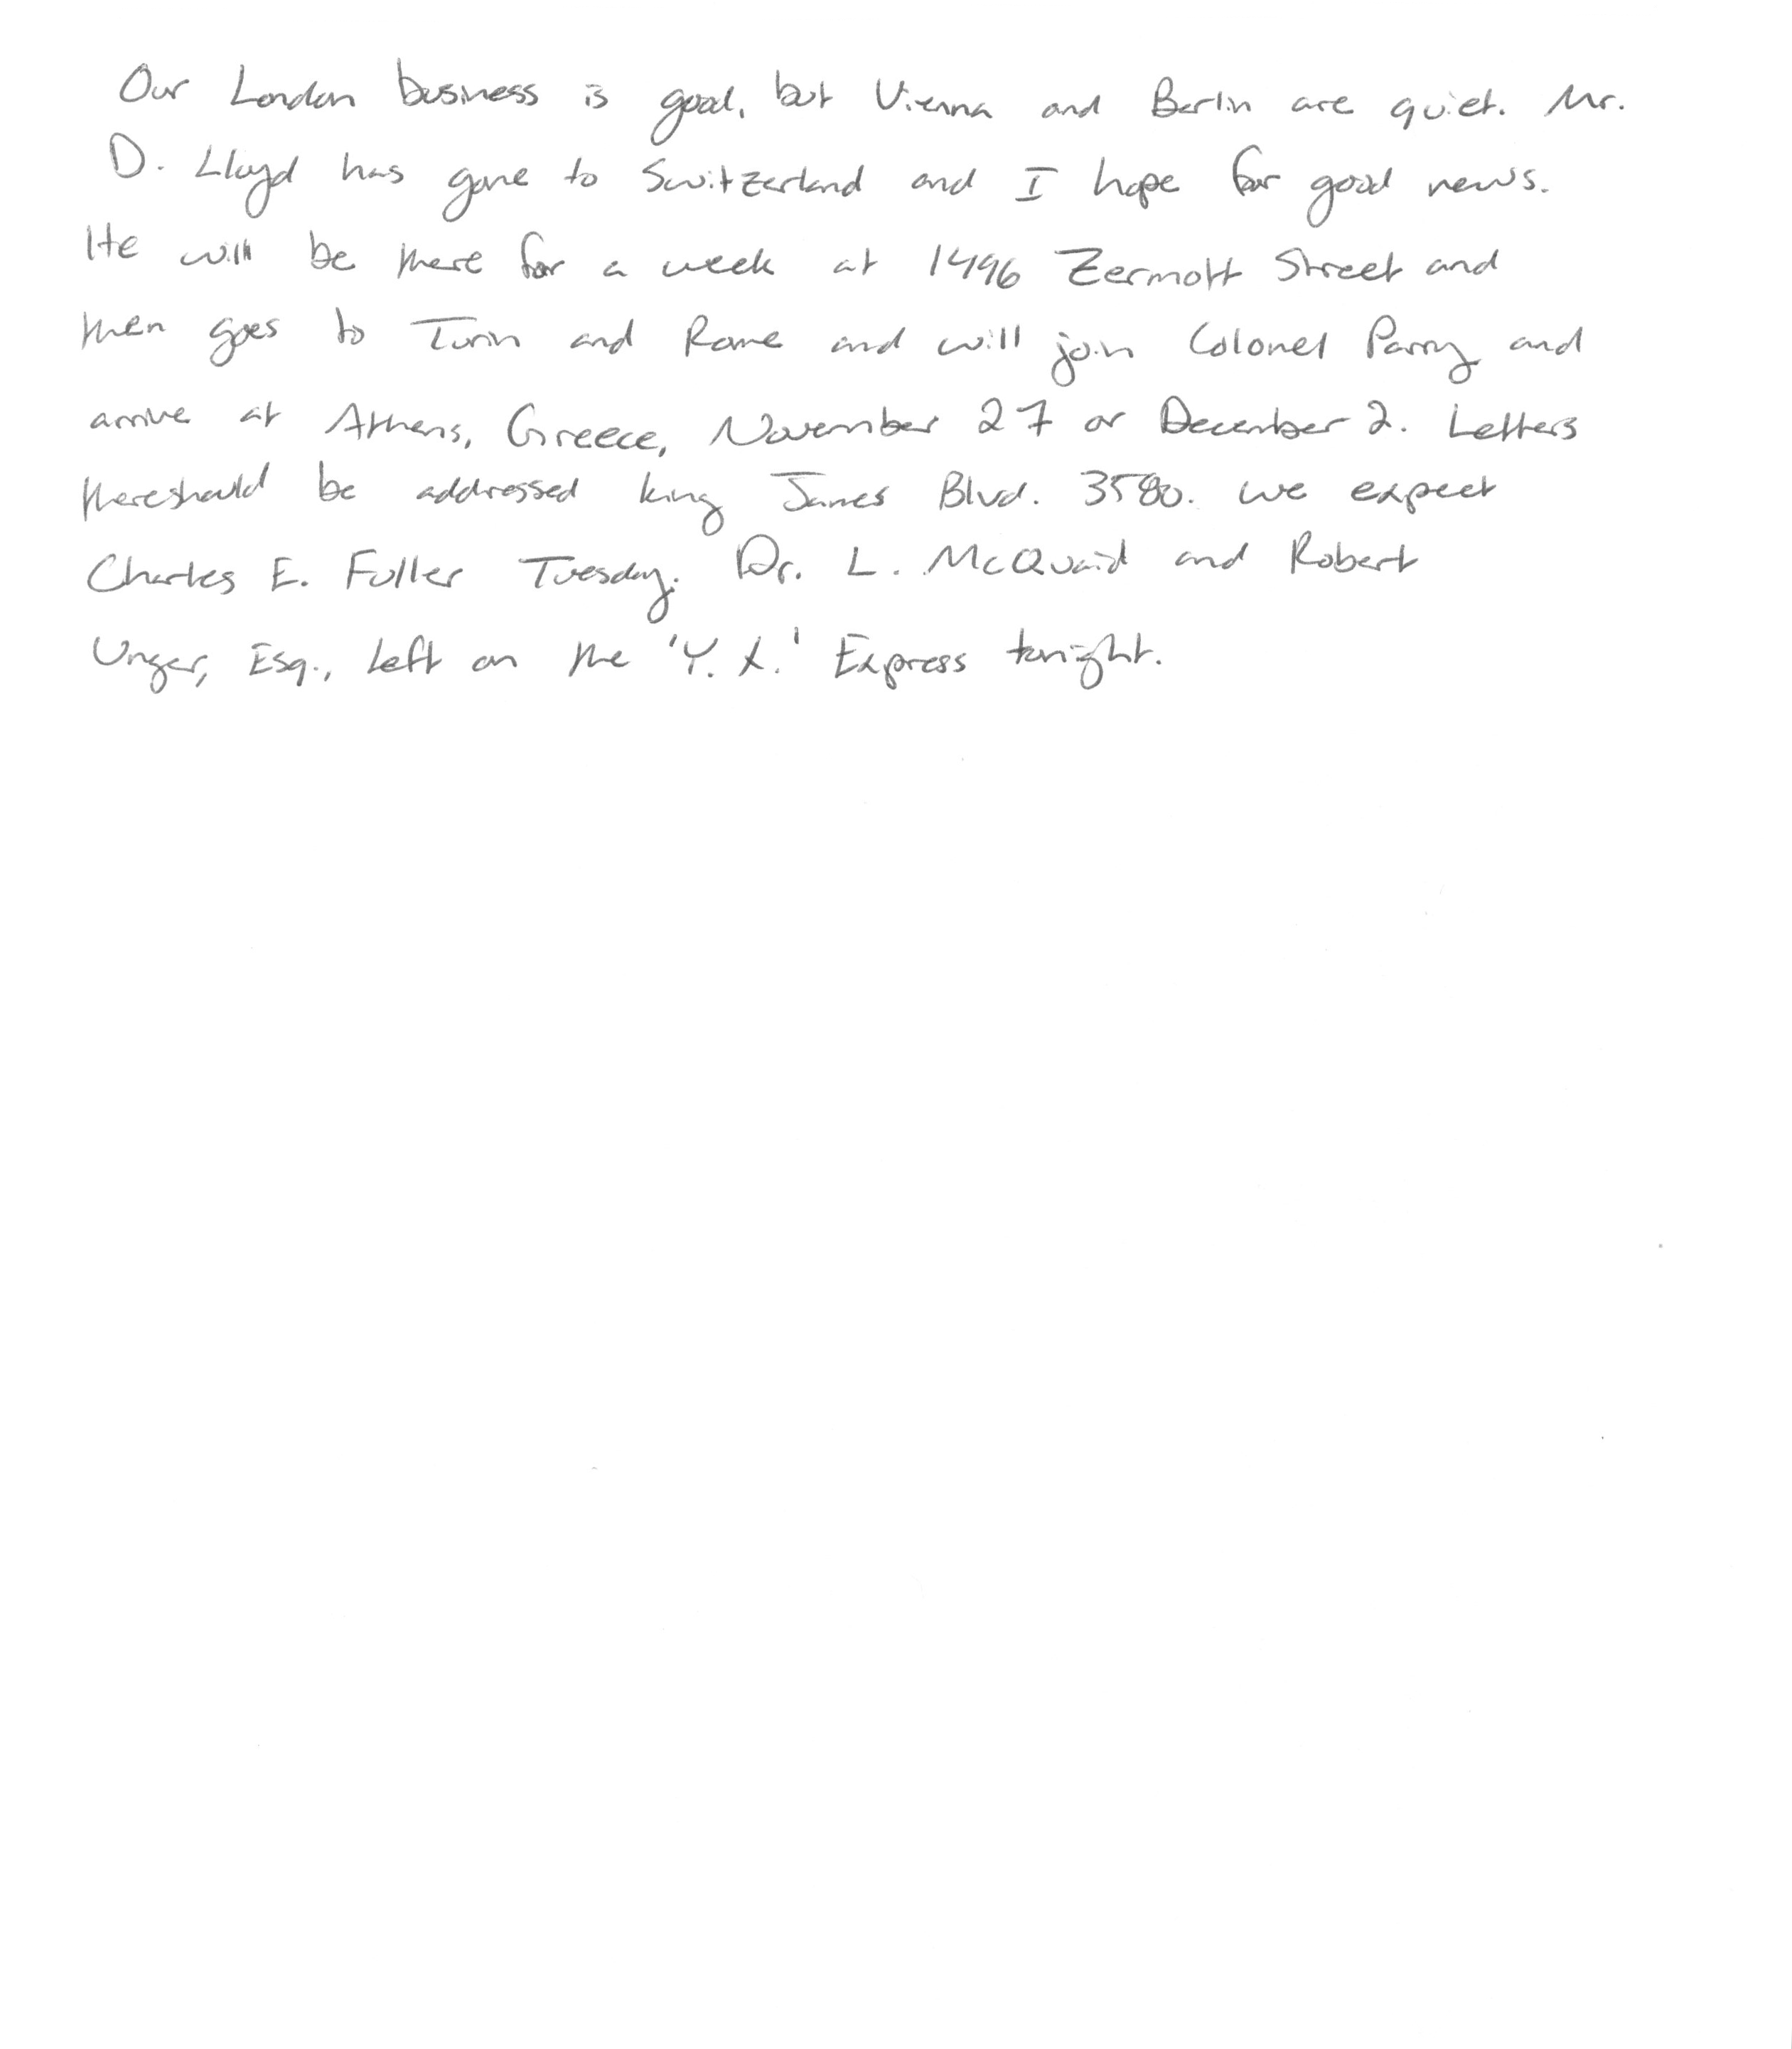 Our London business is good, but Vienna and Berlin are quiet. Mr.
D. Lloyd has gone to Switzerland and I hope for good news.
He will be there for a week at 1496 Zermott Street and
then goes to Turin and Rome and will join Colonel Parry and
arrive at Athens, Greece, November 27 or December 2. Letters
thereshould be addressed king James Blvd. 3580. we expect
Charles E. Fuller Tuesday. Dr. L. McQuaid and Robert
Unger, Esq., left on the 'Y. X.' Express tonight.